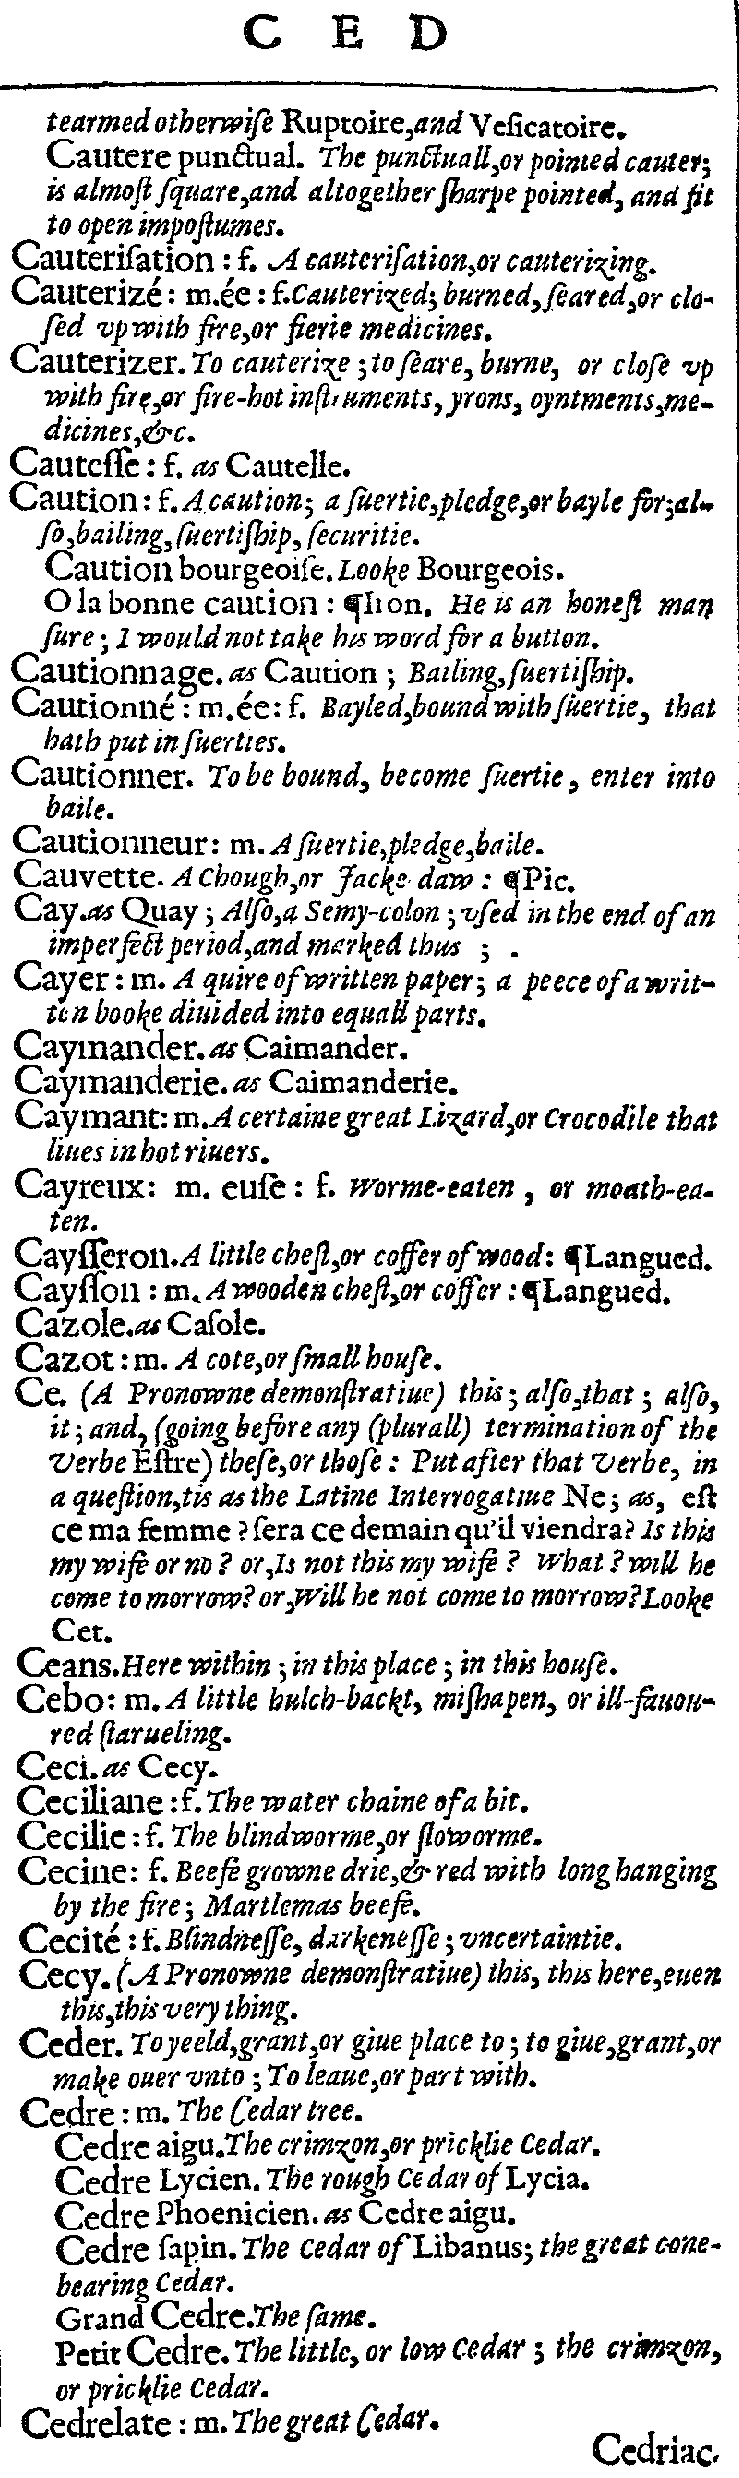 C E D
tearmed otherwiſe Ruptoire,and Veſicatoire.
Cautere punctual. The punctuall,or pointed cauter;
is almoſt ſquare,and altogether ſharpe pointed, and fit
to open impoſtumes.
Cauteriſation : f. A cauteriſation,or cauterizing.
Cauterizé : m.ée : f.Cauterized; burned, ſeared,or clo-
ſed vp with fire,or fierie medicines.
Cauterizer. To cauterize ; to ſeare, burne, or cloſe vp
with fire,or fire-hot inſtruments, yrons, oyntments,me-
dicines,&c.
Cauteſſe : f. as Cautelle.
Caution : f. A caution; a ſuertie,pledge,or bayle for;al-
ſo,bailing, ſuertiſhip, ſecuritie.
Caution bourgeoiſe. Looke Bourgeois.
O la bonne caution : ¶Iron. He is an honeſt man
ſure ; I would not take his word for a button.
Cautionnage. as Caution ; Bailing,ſuertiſhip.
Cautionné : m.ée: f. Bayled,bound with ſuertie, that
hath put in ſuerties.
Cautionner. To be bound, become ſuertie , enter into
baile.
Cautionneur: m. A ſuertie,pledge,baile.
Cauvette. A Chough,or Jacke daw : ¶Pic.
Cay.as Quay ; Alſo,a Semy-colon ; vſed in the end of an
imperfect period,and marked thus ; .
Cayer : m. A quire of written paper; a peece of a writ-
ten booke diuided into equall parts.
Caymander. as Caimander.
Caymanderie. as Caimanderie.
Caymant: m. A certaine great Lizard,or Crocodile that
liues in hot riuers.
Cayreux: m. euſe : f. Worme-eaten , or moath-ea-
ten.
Cayſſeron. A little cheſt,or coffer of wood: ¶Langued.
Cayſſon : m. A wooden cheſt,or coffer : ¶Langued.
Cazole.as Caſole.
Cazot : m. A cote,or ſmall houſe.
Ce. (A Pronowne demonſtratiue) this ; alſo,that ; alſo,
it ; and, (going before any (plurall) termination of the
Verbe Eſtre) theſe,or thoſe : Put after that Verbe, in
a queſtion,tis as the Latine Interrogatiue Ne; as, eſt
ce ma femme ? ſera ce demain qu'il viendra? Is this
my wife or no ? or,Is not this my wife ? What ? will he
come to morrow? or,Will he not come to morrow?Looke
Cet.
Ceans.Here within ; in this place ; in this houſe.
Cebo: m. A little hulch-backt, miſhapen, or ill-fauou-
red ſtarueling.
Ceci. as Cecy.
Ceciliane : f. The water chaine of a bit.
Cecilie : f. The blindworme,or ſloworme.
Cecine: f. Beefe growne drie,& red with long hanging
by the fire ; Martlemas beefe.
Cecité : f. Blindneſſe, darkeneſſe ; vncertaintie.
Cecy. (A Pronowne demonſtratiue) this, this here,euen
this,this very thing.
Ceder. To yeeld,grant,or giue place to ; to giue,grant,or
make ouer vnto ; To leaue,or part with.
Cedre : m. The Cedar tree.
Cedre aigu.The crimzon,or pricklie Cedar.
Cedre Lycien. The rough Cedar of Lycia.
Cedre Phoenicien. as Cedre aigu.
Cedre ſapin. The Cedar of Libanus; the great cone-
bearing Cedar.
Grand Cedre.The ſame.
Petit Cedre. The little, or low Cedar ; the crimzon,
or pricklie Cedar.
Cedrelate : m. The great Cedar.
Cedriac.